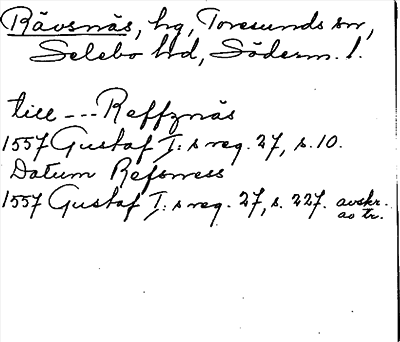 Rävsnäs, hg, Toresunds sn,
Selebo hd, Söderm. l.
till --- Reffznäs
1557 Gustaf I: s reg. 27, s. 10.
Datum Refsness
1557 Gustaf I: s reg. 27, s. 227. avskr.
ao tr.